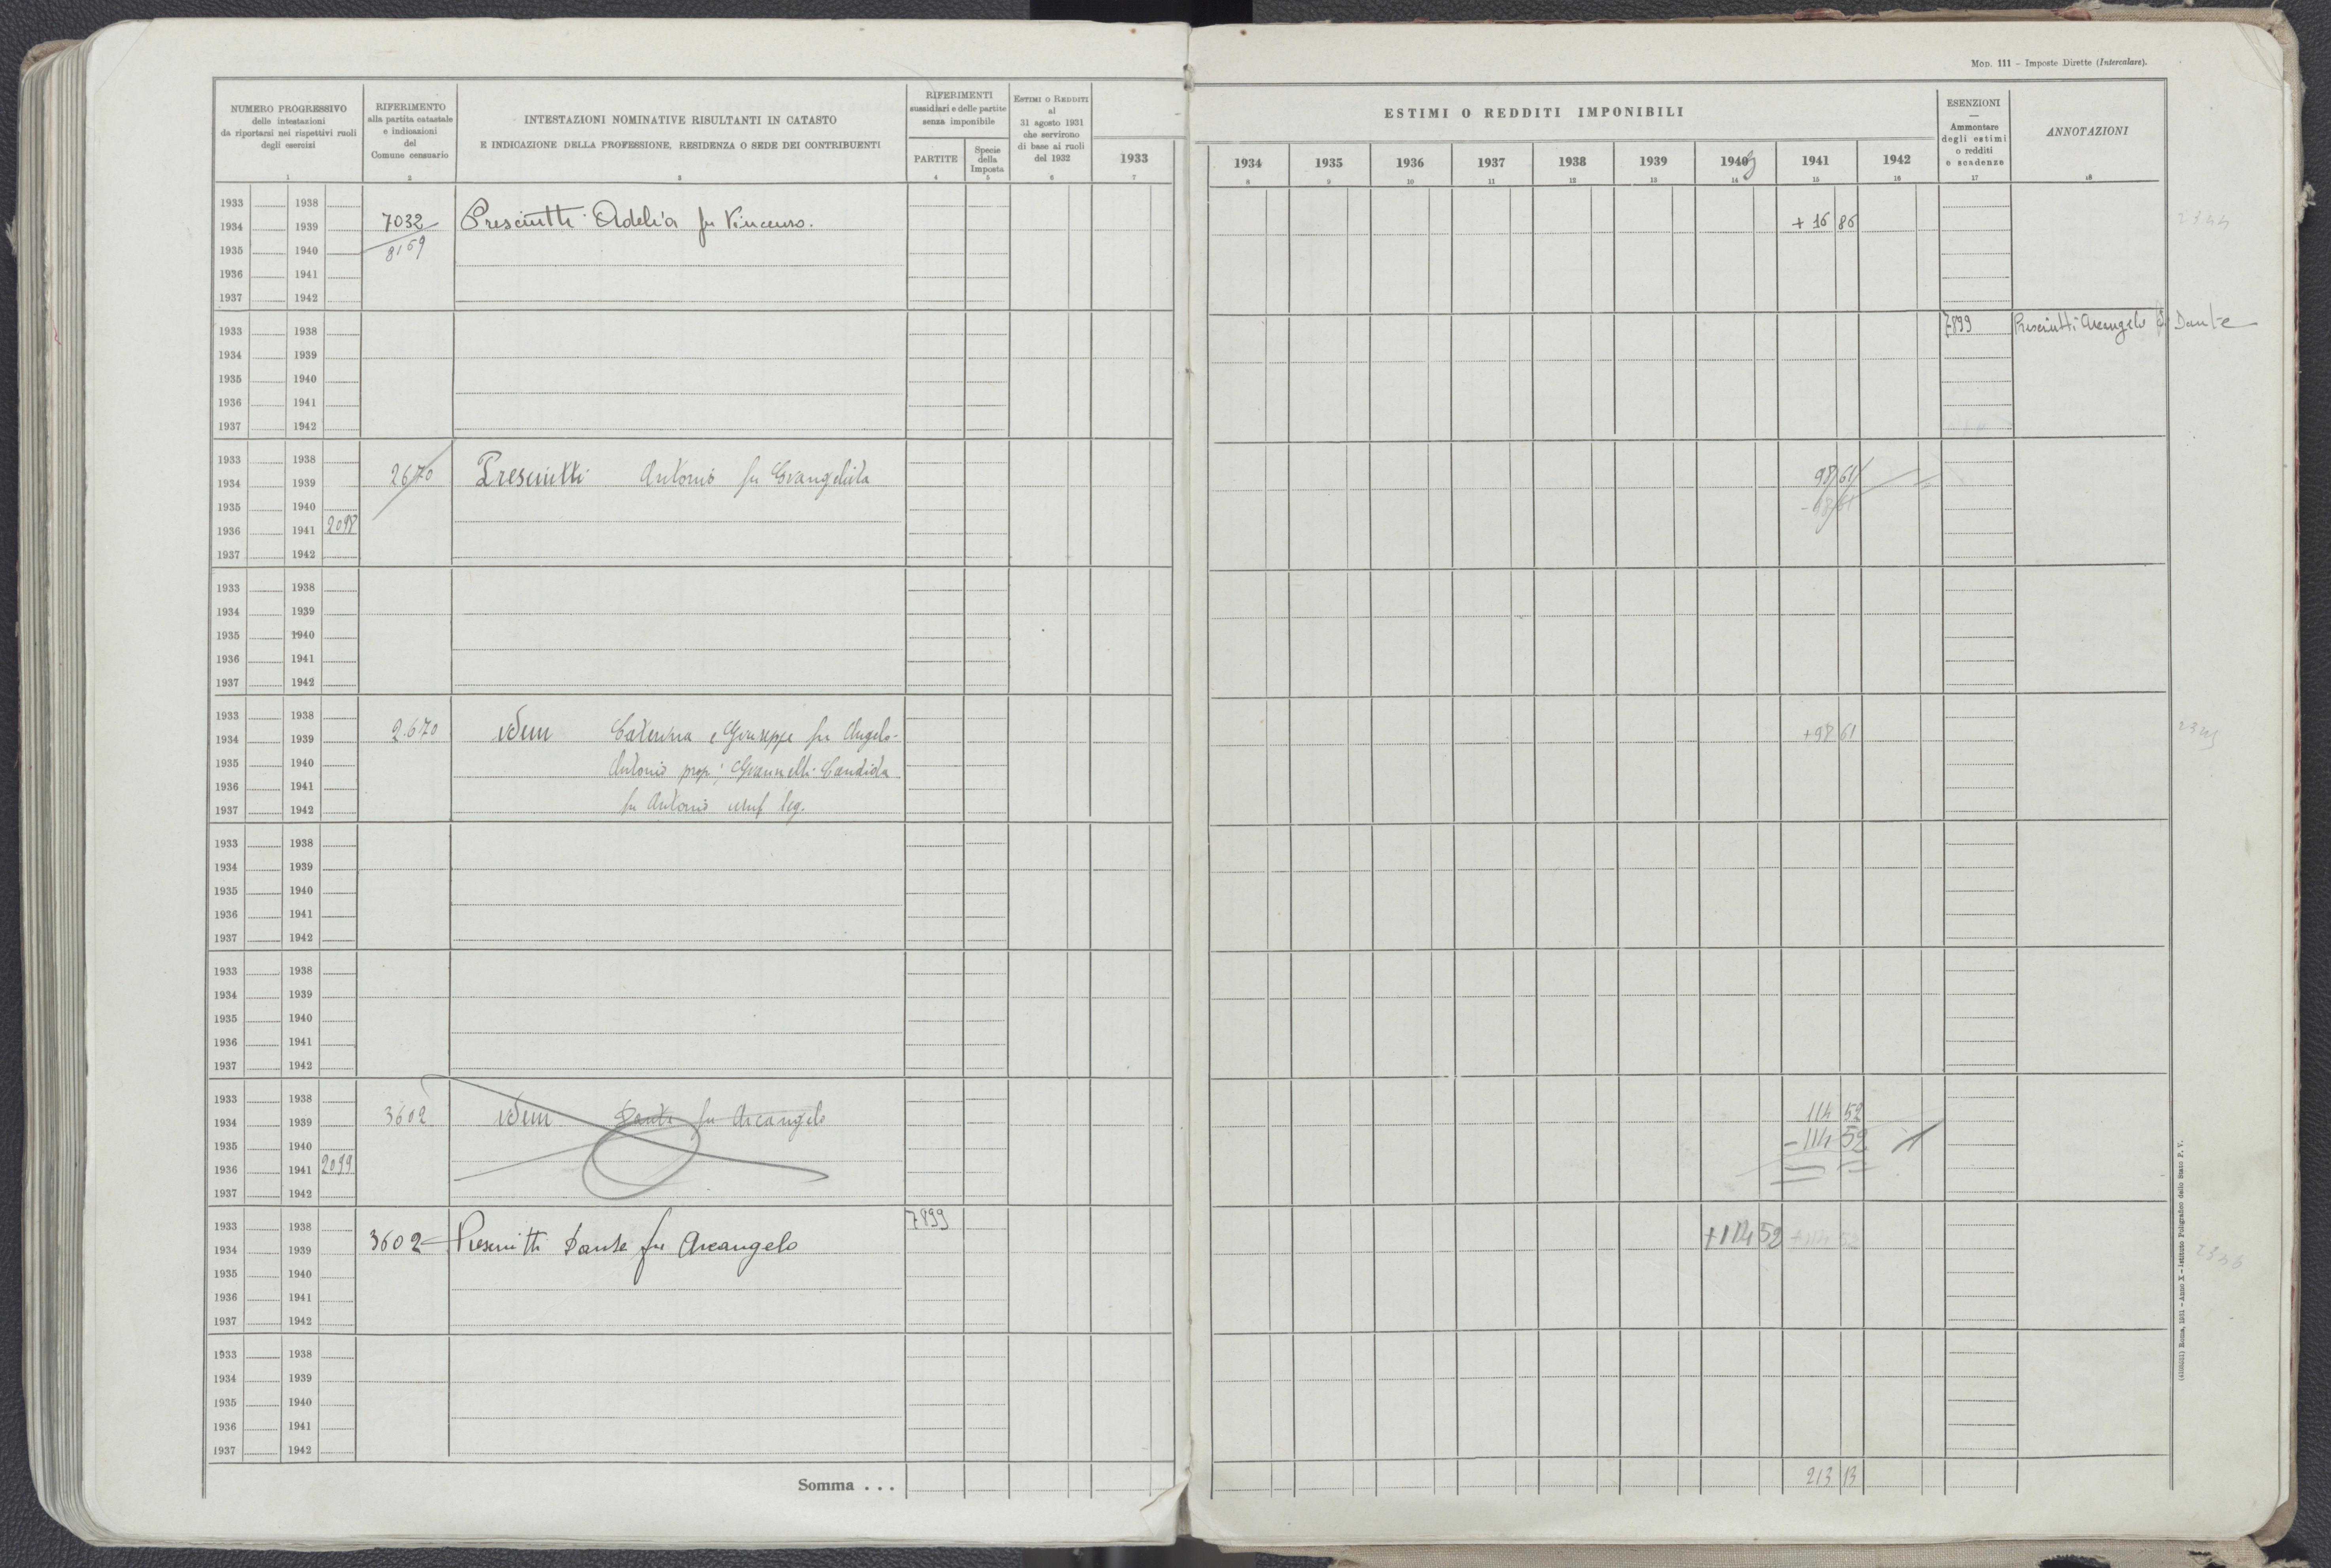 Mod. 111 – Imposte Dirette (Intercalare).
NUMERO PROGRESSIVO
delle intestazioni
da riportarsi nei rispettivi ruoli
degli esercizi
1
RIFERIMENTO
alla partita catastale
e indicazioni
del
Comune censuario
2
INTESTAZIONI NOMINATIVE RISULTANTI IN CATASTO
E INDICAZIONE DELLA PROFESSIONE, RESIDENZA O SEDE DEI CONTRIBUENTI
3
RIFERIMENTI
sussidiari e delle partite
senza imponibile
PARTITE
4
Specie
della
Imposta
5
Estimi o Redditi
al
31 agosto 1931
che servirono
di base ai ruoli
del 1932
6
1933
7
ESTIMI O REDDITI IMPONIBILI
1934 1935 1936 1937 1938 1939 1940 1941 1942
8 9 10 11 12 13 14 15 16
ESENZIONI
—
Ammontare
degli estimi
o redditi
e scadenze
17
ANNOTAZIONI
18
1933 1938
1934 1939 7032 Presciutti Adelia fu Vincenzo. + 16 86 2344
1935 1940 8169
1936 1941
1937 1942
1933 1938 7899 Presciutti Arcangelo di Dante
1934 1939
1935 1940
1936 1941
1937 1942
1933 1938
1934 1939 2670 Presciutti Antonio fu Evangelista 98 61
1935 1940 - 98 61
1936 1941 2098
1937 1942
1933 1938
1934 1939
1935 1940
1936 1941
1937 1942
1933 1938
1934 1939 2670 idem Caterina e Giuseppe fu Angelo- +98 61 2345
1935 1940 Antonio prop; Giannelli Candida
1936 1941
1937 1942 fu Antonio usuf leg.
1933 1938
1934 1939
1935 1940
1936 1941
1937 1942
1933 1938
1934 1939
1935 1940
1936 1941
1937 1942
1933 1938
1934 1939 3602 idem Dante fu Arcangelo 114 52
1935 1940 - 114 52
1936 1941 2099
1937 1942
1933 1938 7899
1934 1939 3602 Presciutti Dante fu Arcangelo +114 52 +114 52 2346
1935 1940
1936 1941
1937 1942
1933 1938
1934 1939
1935 1940
1936 1941
1937 1942
Somma . . . 213 13
Roma, 1931 – Anno X – Istituto Poligrafico dello Stato P. V.